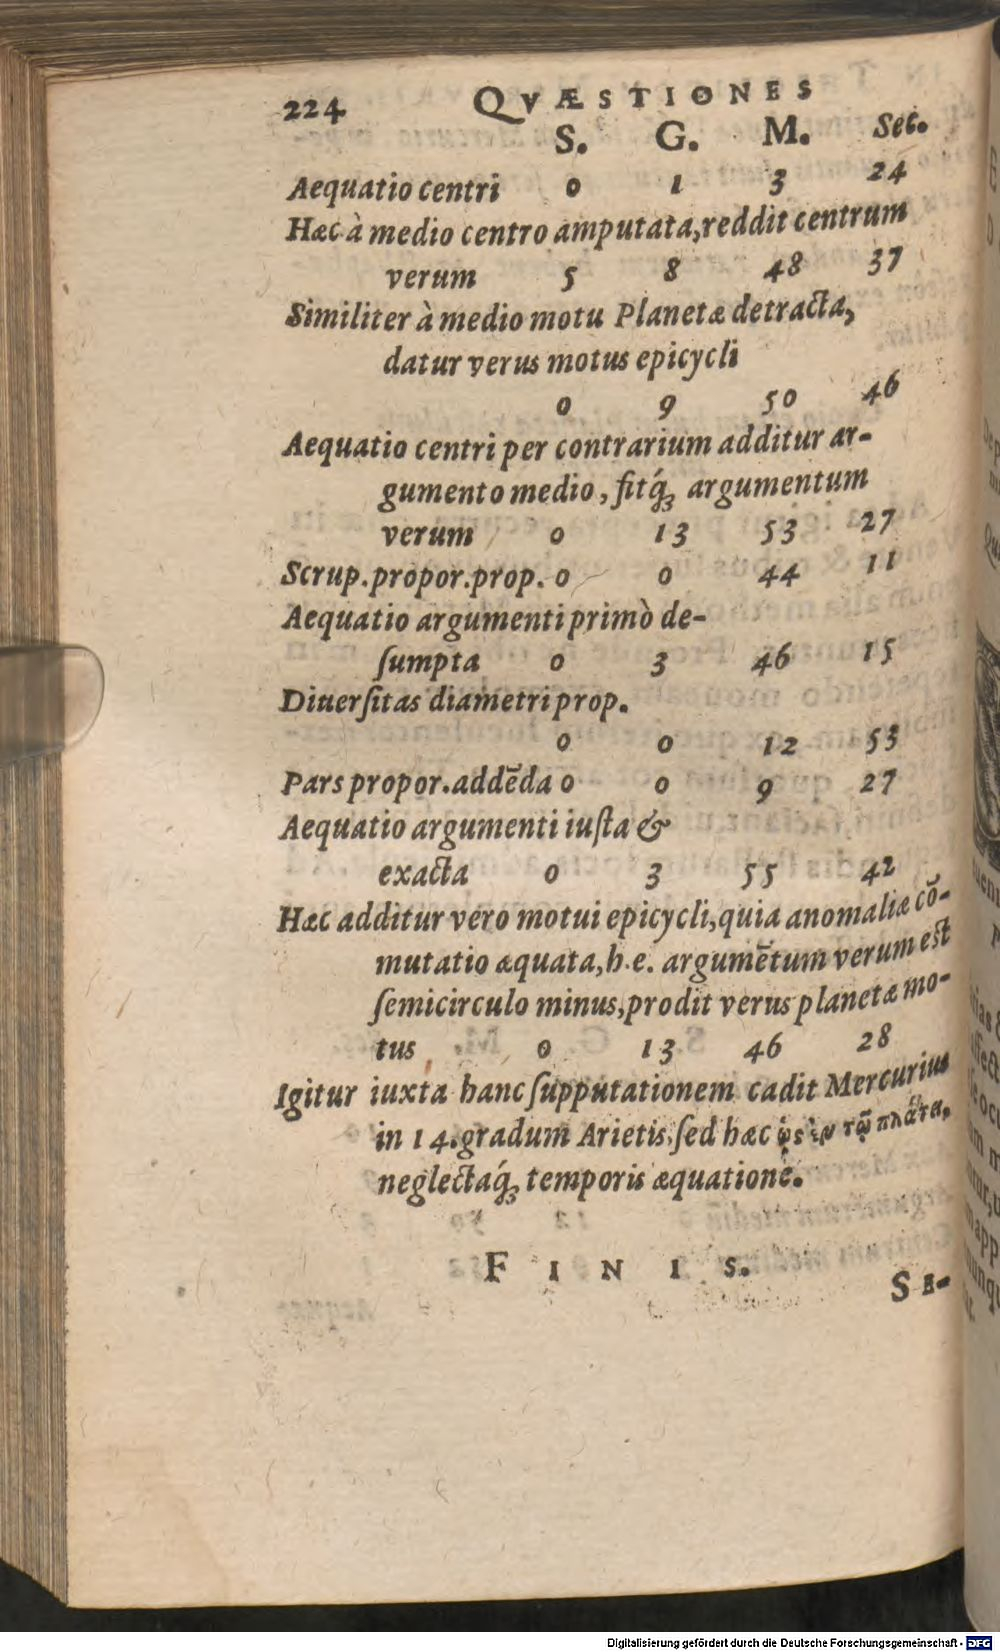 224 QVÆSTIONES
S. G. M. Sec.
Aequatio centri 0 1 3 24
Hæc à medio centro amputata, reddit centrum
verum 5 8 48 37
Similiter à medio motu Planetæ detracta,
datur verus motus epicycli
0 9 50 46
Aequatio centri per contrarium additur ar-
gumento medio, fitq́ꝫ argumentum
verum 0 13 53 27
Scrup. propor. prop. 0 0 44 11
Aequatio argumenti primò de-
ſumpta 0 3 46 15
Diuerſitas diametri prop.
0 0 12 53
Pars propor. addēda 0 0 9 27
Aequatio argumenti iuſta &
exacta 0 3 55 42
Hæc additur vero motui epicycli, quia anomaliæ cō-
mutatio æquata, h. e. argumētum verum est
ſemicirculo minus, prodit verus planetæ mo-
tus 0 13 46 28
Igitur iuxta hanc ſupputationem cadit Mercurius
in 14. gradum Arietis, ſed hæc ὡς ἐν τῷ πλάτει,
neglectaq́ꝫ temporis æquatione.
FINIS.
SE-
Digitalisierung gefördert durch die Deutsche Forschungsgemeinschaft - DFG